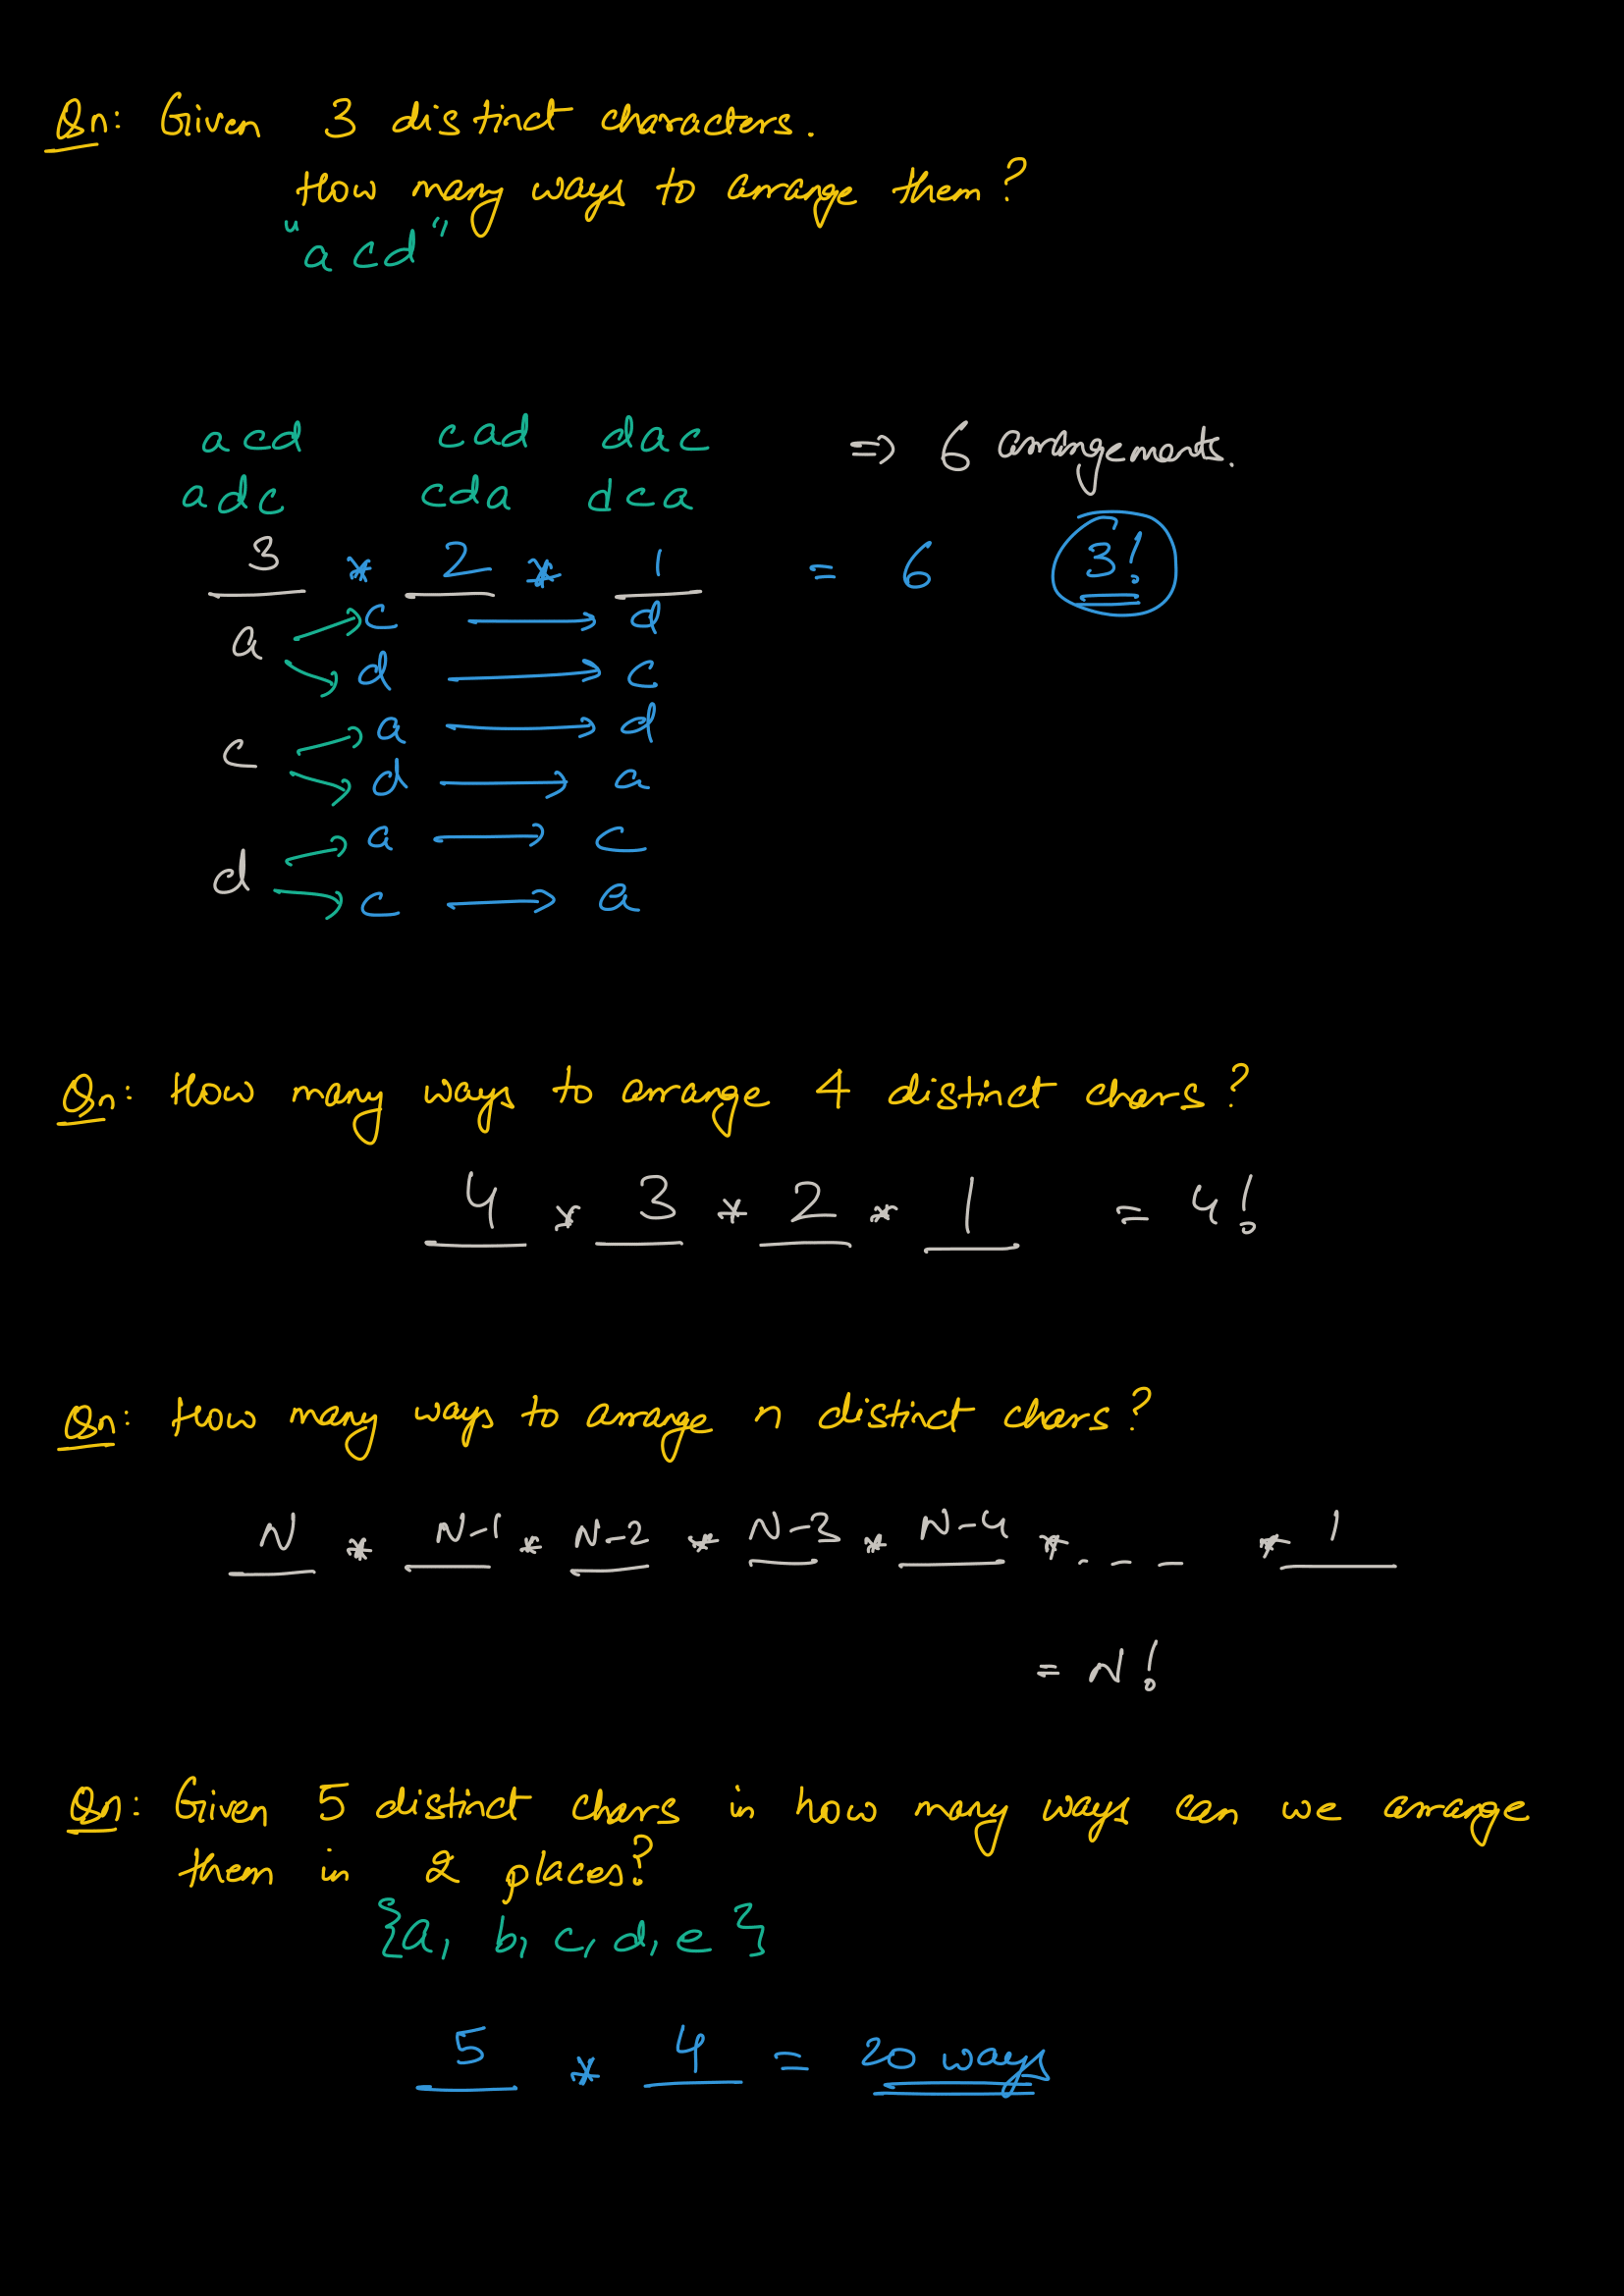 Qn: Given 3 distinct characters.
How many ways to arrange them?
"acd"
acd cad dac => 6 arrangements.
adc cda dca
3 * 2 * 1 = 6 3!
a → c → d
→ d → c
c → a → d
→ d → a
d → a → c
→ c → a
Qn: How many ways to arrange 4 distinct chars?
4 * 3 * 2 * 1 = 4!
Qn: How many ways to arrange n distinct chars?
N * N-1 * N-2 * N-3 * N-4 * . _ _ _ * 1
= N!
Qn: Given 5 distinct chars in how many ways can we arrange
them in 2 places?
{a, b, c, d, e}
5 * 4 = 20 ways